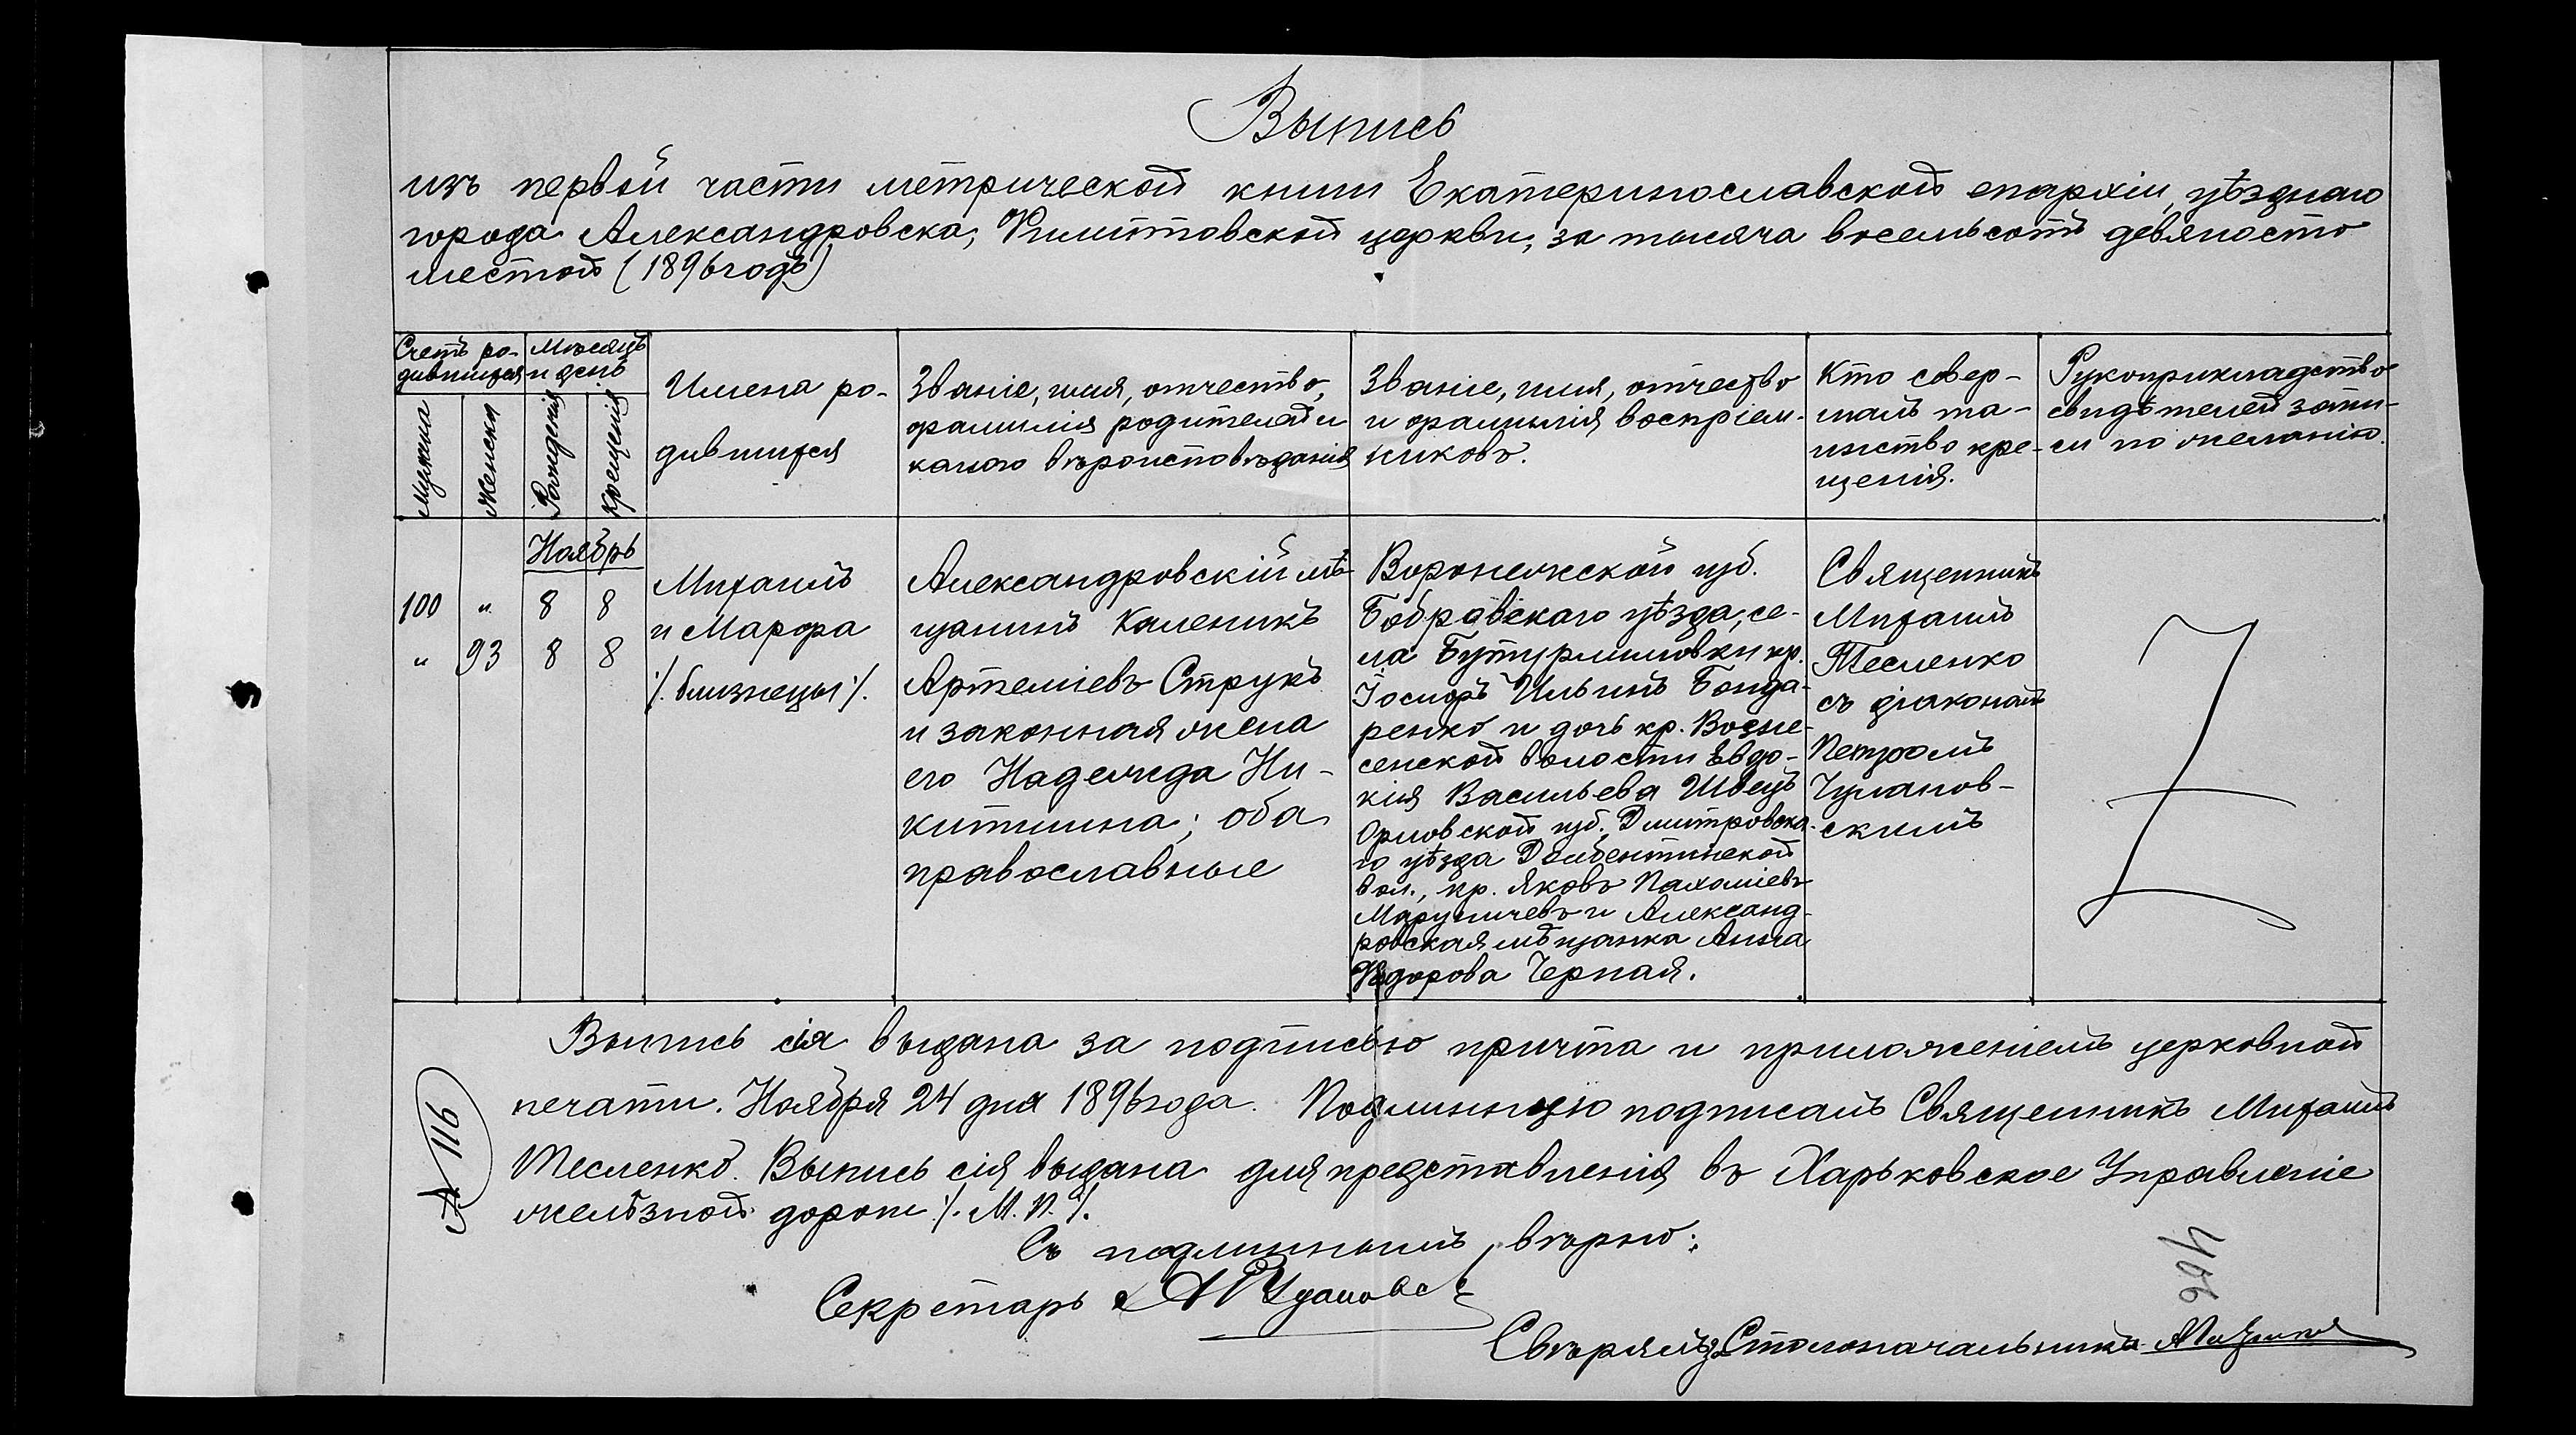 Выпись
изъ первой части метрической книги Екатеринославской епархіи, уѣзднаго
города Александровска, Филипповской церкви, за тысяча восемьсотъ девяносто
шестой (1896 годъ)
Счетъ ро-
дившихся
Мѣсяцъ
и день
Мужска
Женска
Рожденія
Крещенія
Имена ро-
дившихся
Званіе, имя, отчество,
фамилія родителей и
какого вѣроисповѣданія
Званіе, имя, отчество
и фамилія воспріем-
никовъ.
Кто совер-
шалъ та-
инство кре-
щенія.
Рукоприкладство
свидѣтелей запи-
си по желанію.
Ноябрь
100 " 8 8
" 93 8 8
Михаилъ
и Марфа
/. близнецы /.
Александровскій мѣ-
щанинъ Каленикъ
Артеміевъ Струкъ
и законная жена
его Надежда Ни-
китина; оба
православные
Воронежской губ.
Бобровскаго уѣзда, се-
ла Бутурлиновки кр.
Іосифъ Ильинъ Бонда-
ренко и дочь кр. Возне-
сенской волости Евдо-
кія Васильева Швецъ
Орловской губ. Дмитровска-
го уѣзда
вол., кр. Яковъ Пахоміевъ
и Александ-
ровская мѣщанка Анна
Федорова Черная.
Священникъ
Михаилъ
Тесленко
съ діакономъ
Петромъ
Чулановскимъ
Выпись сія выдана за подписью причта и приложеніемъ церковной
печати. Ноября 24 дня 1896 года. Подлинную подписалъ Священникъ Михаилъ
Тесленко. Выпись сія выдана для представленія въ Харьковское Управленіе
желѣзной дороги /. М. П. /.
Съ подлиннымъ вѣрно:
Секретарь
Свѣрялъ, Столоначальникъ
116